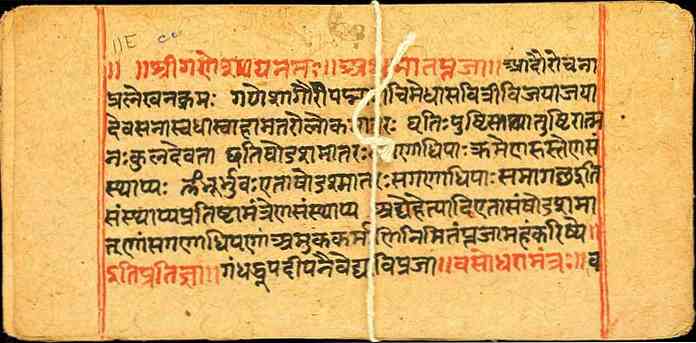 ॥ ॥श्रीगणेशायनमः॥अथ मातपूजा॥आदौरोचना
प्रलेखनक्रमः गणेशगौरीपद्मा चिमेधासवित्रीविजयाजया
देवसेनास्वधास्वाहामातरोलोकमातरः धृतिःपुष्टिस्तथातुष्टिरात्म
नःकुलदेवता इतिषोडशमातरः सगणाधिपाः क्रमेणहस्तेणसं
स्थाप्यः ॐभूर्भुवःएताषोडशमातरःसगणाधिपाःसमागछतइति
संस्थाप्यप्रतिष्टामंत्रेणसंस्थाप्य अद्येहेत्यादिएतासंषोडशमा
तॄणांसगणाधिपणां अमुककर्माणिनिमितंपूजामहंकरिष्ये॥
इतिप्रतिज्ञा॥गंधधूपदीपनैवेद्य विपूजा॥वसोधरामंत्रः॥व